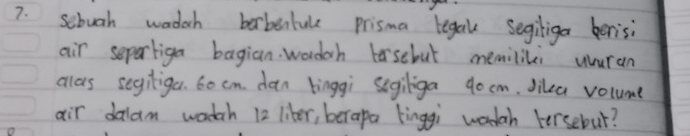 7. sebuah wadah berbentuk prisma tegak segitiga berisi
air sepertiga bagian. wadah tersebut memiliki ukuran
alas segitiga. 60 cm dan tinggi segitiga 40 cm. Jika volume
air dalam wadah 12 liter, berapa tinggi wadah tersebut?